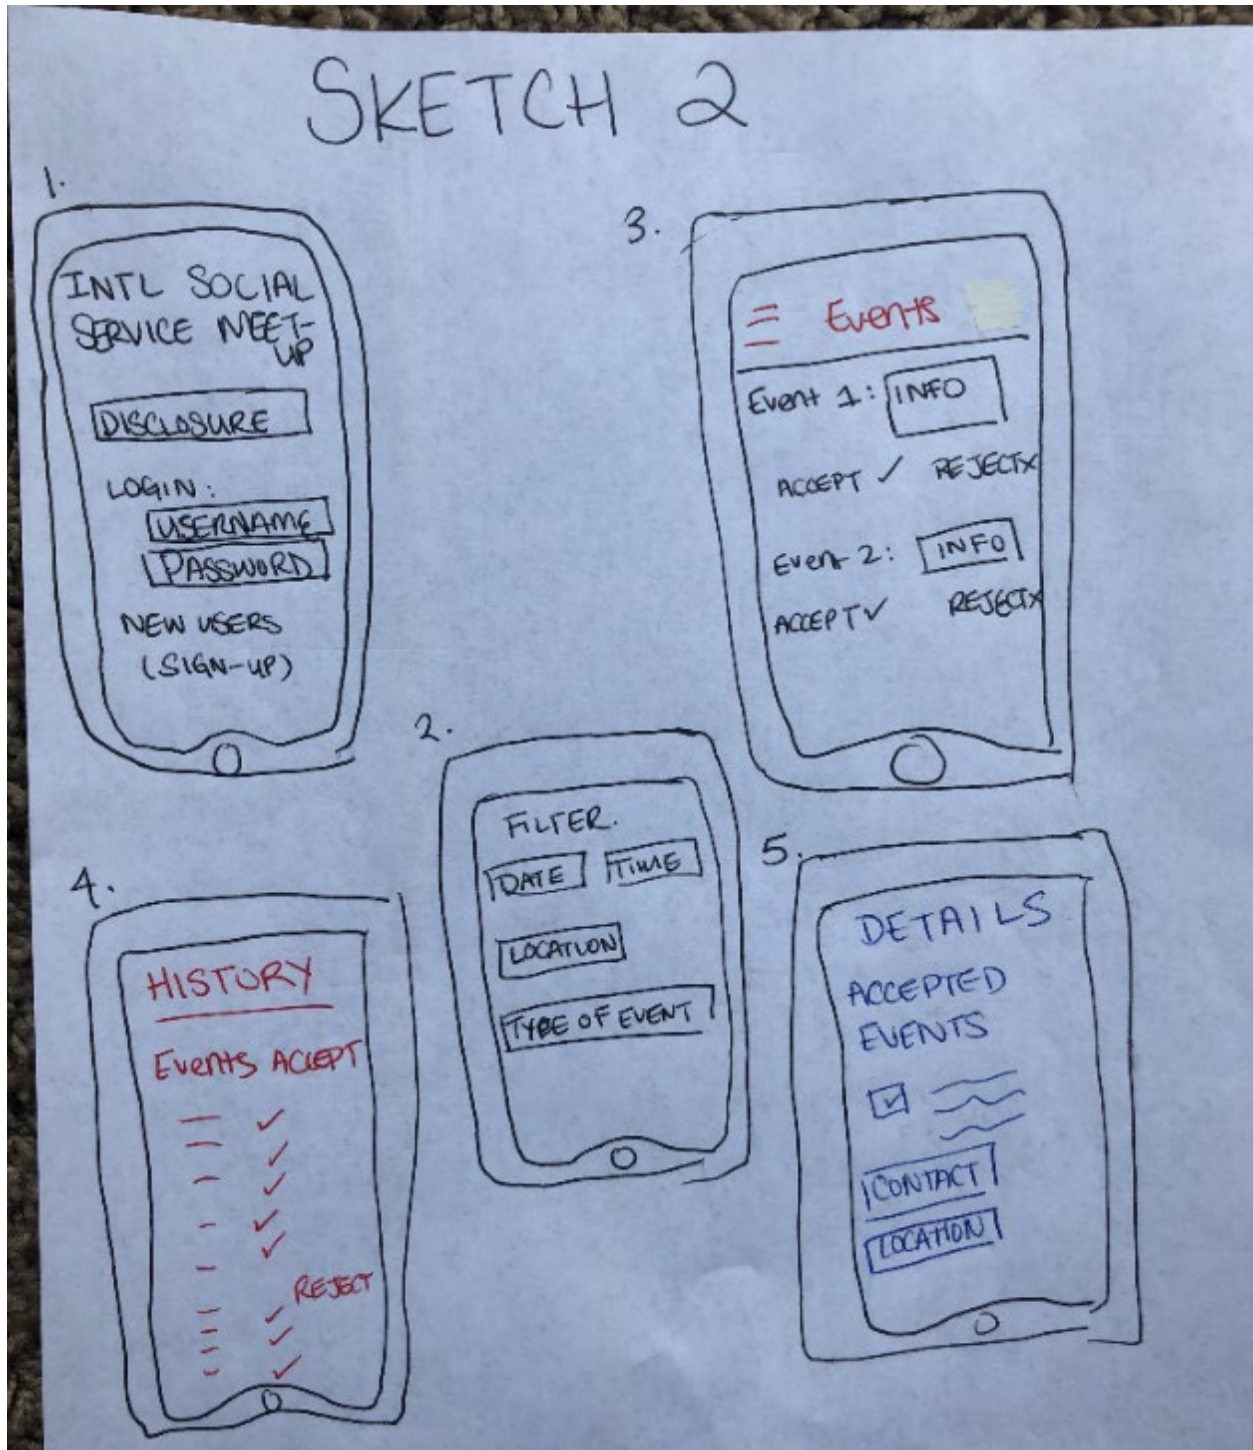 SKETCH 2
1.
INTL SOCIAL
SERVICE MEET-
UP
DISCLOSURE
LOGIN:
USERNAME
PASSWORD
NEW USERS
(SIGN-UP)
2.
FILTER.
DATE TIME
LOCATION
TYPE OF EVENT
3.
Events
Event 1: INFO
ACCEPT ✓ REJECT X
Event 2: INFO
ACCEPT ✓ REJECT X
4.
HISTORY
Events ACCEPT
REJECT
5.
DETAILS
ACCEPTED
EVENTS
CONTACT
LOCATION